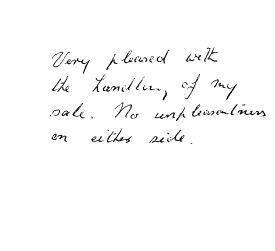 Very pleased with
the handling of my
sale. No unpleasantness
on either side.